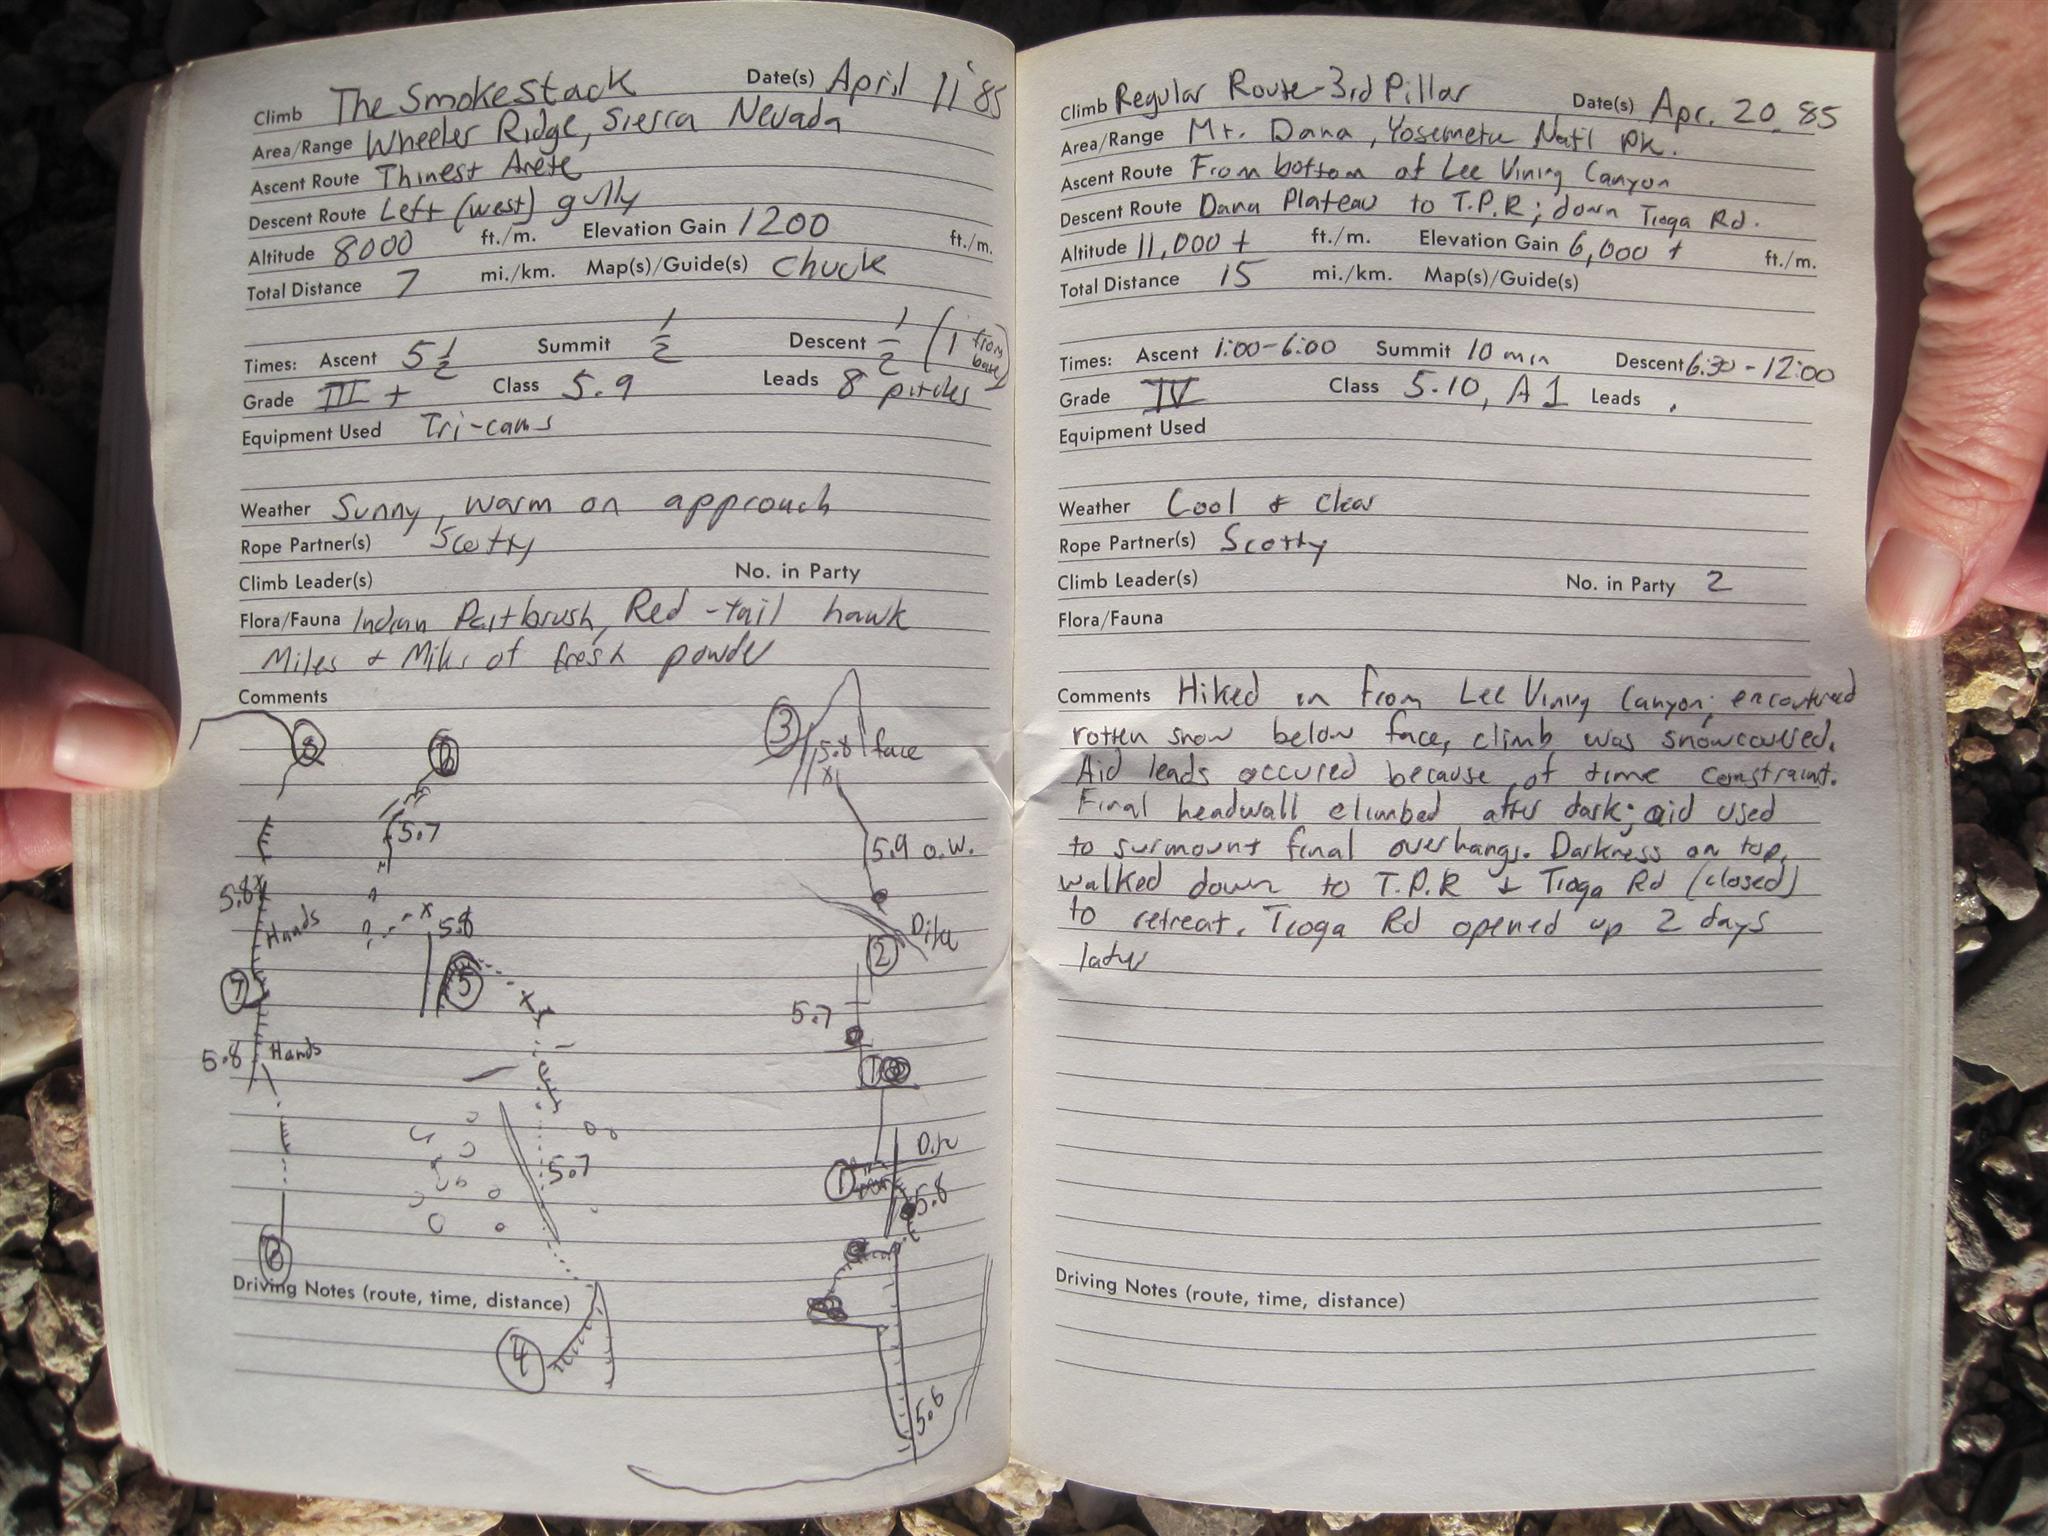 Climb The Smokestack Date(s) April 11 '85
Area/Range Wheeler Ridge, Sierra Nevada
Ascent Route Thinest Arete
Descent Route Left (west) gully
Altitude 8000 ft./m. Elevation Gain 1200 ft./m.
Total Distance 7 mi./km. Map(s)/Guide(s) Chuck
Times: Ascent 5 1/2 Summit 1/2 Descent 1/2 (1 from base)
Grade III + Class 5.9 Leads 8 pitches
Equipment Used Tri-cams
Weather Sunny, warm on approach
Rope Partner(s) Scotty
Climb Leader(s) No. in Party
Flora/Fauna Indian Paitbrush, Red-tail hawk
Miles & Miles of fresh powder
Comments
8
6
3
5.8 face
x
5.7
5.9 o.w.
5.8 x
Hands
x 5.8
Dike
2
5
7
x
5.7
5.8 Hands
1
5.7
1
5.8
6
Driving Notes (route, time, distance)
4
5.6
Climb Regular Route-3rd Pillar Date(s) Apr. 20, 85
Area/Range Mt. Dana, Yosemete Nat'l Pk.
Ascent Route From bottom of Lee Vining Canyon
Descent Route Dana Plateau to T.P.R; down Tioga Rd.
Altitude 11,000 + ft./m. Elevation Gain 6,000 + ft./m.
Total Distance 15 mi./km. Map(s)/Guide(s)
Times: Ascent 1:00-6:00 Summit 10 min Descent 6:30-12:00
Grade IV Class 5.10, A1 Leads
Equipment Used
Weather Cool & Clear
Rope Partner(s) Scotty
Climb Leader(s) No. in Party 2
Flora/Fauna
Comments Hiked in from Lee Vining Canyon; encoutered
rotten snow below face, climb was snowcovered.
Aid leads occured because of time constraint.
Final headwall climbed after dark; aid used
to surmount final overhangs. Darkness on top,
walked down to T.P.R & Tioga Rd (closed)
to retreat. Tioga Rd opened up 2 days
later
Driving Notes (route, time, distance)